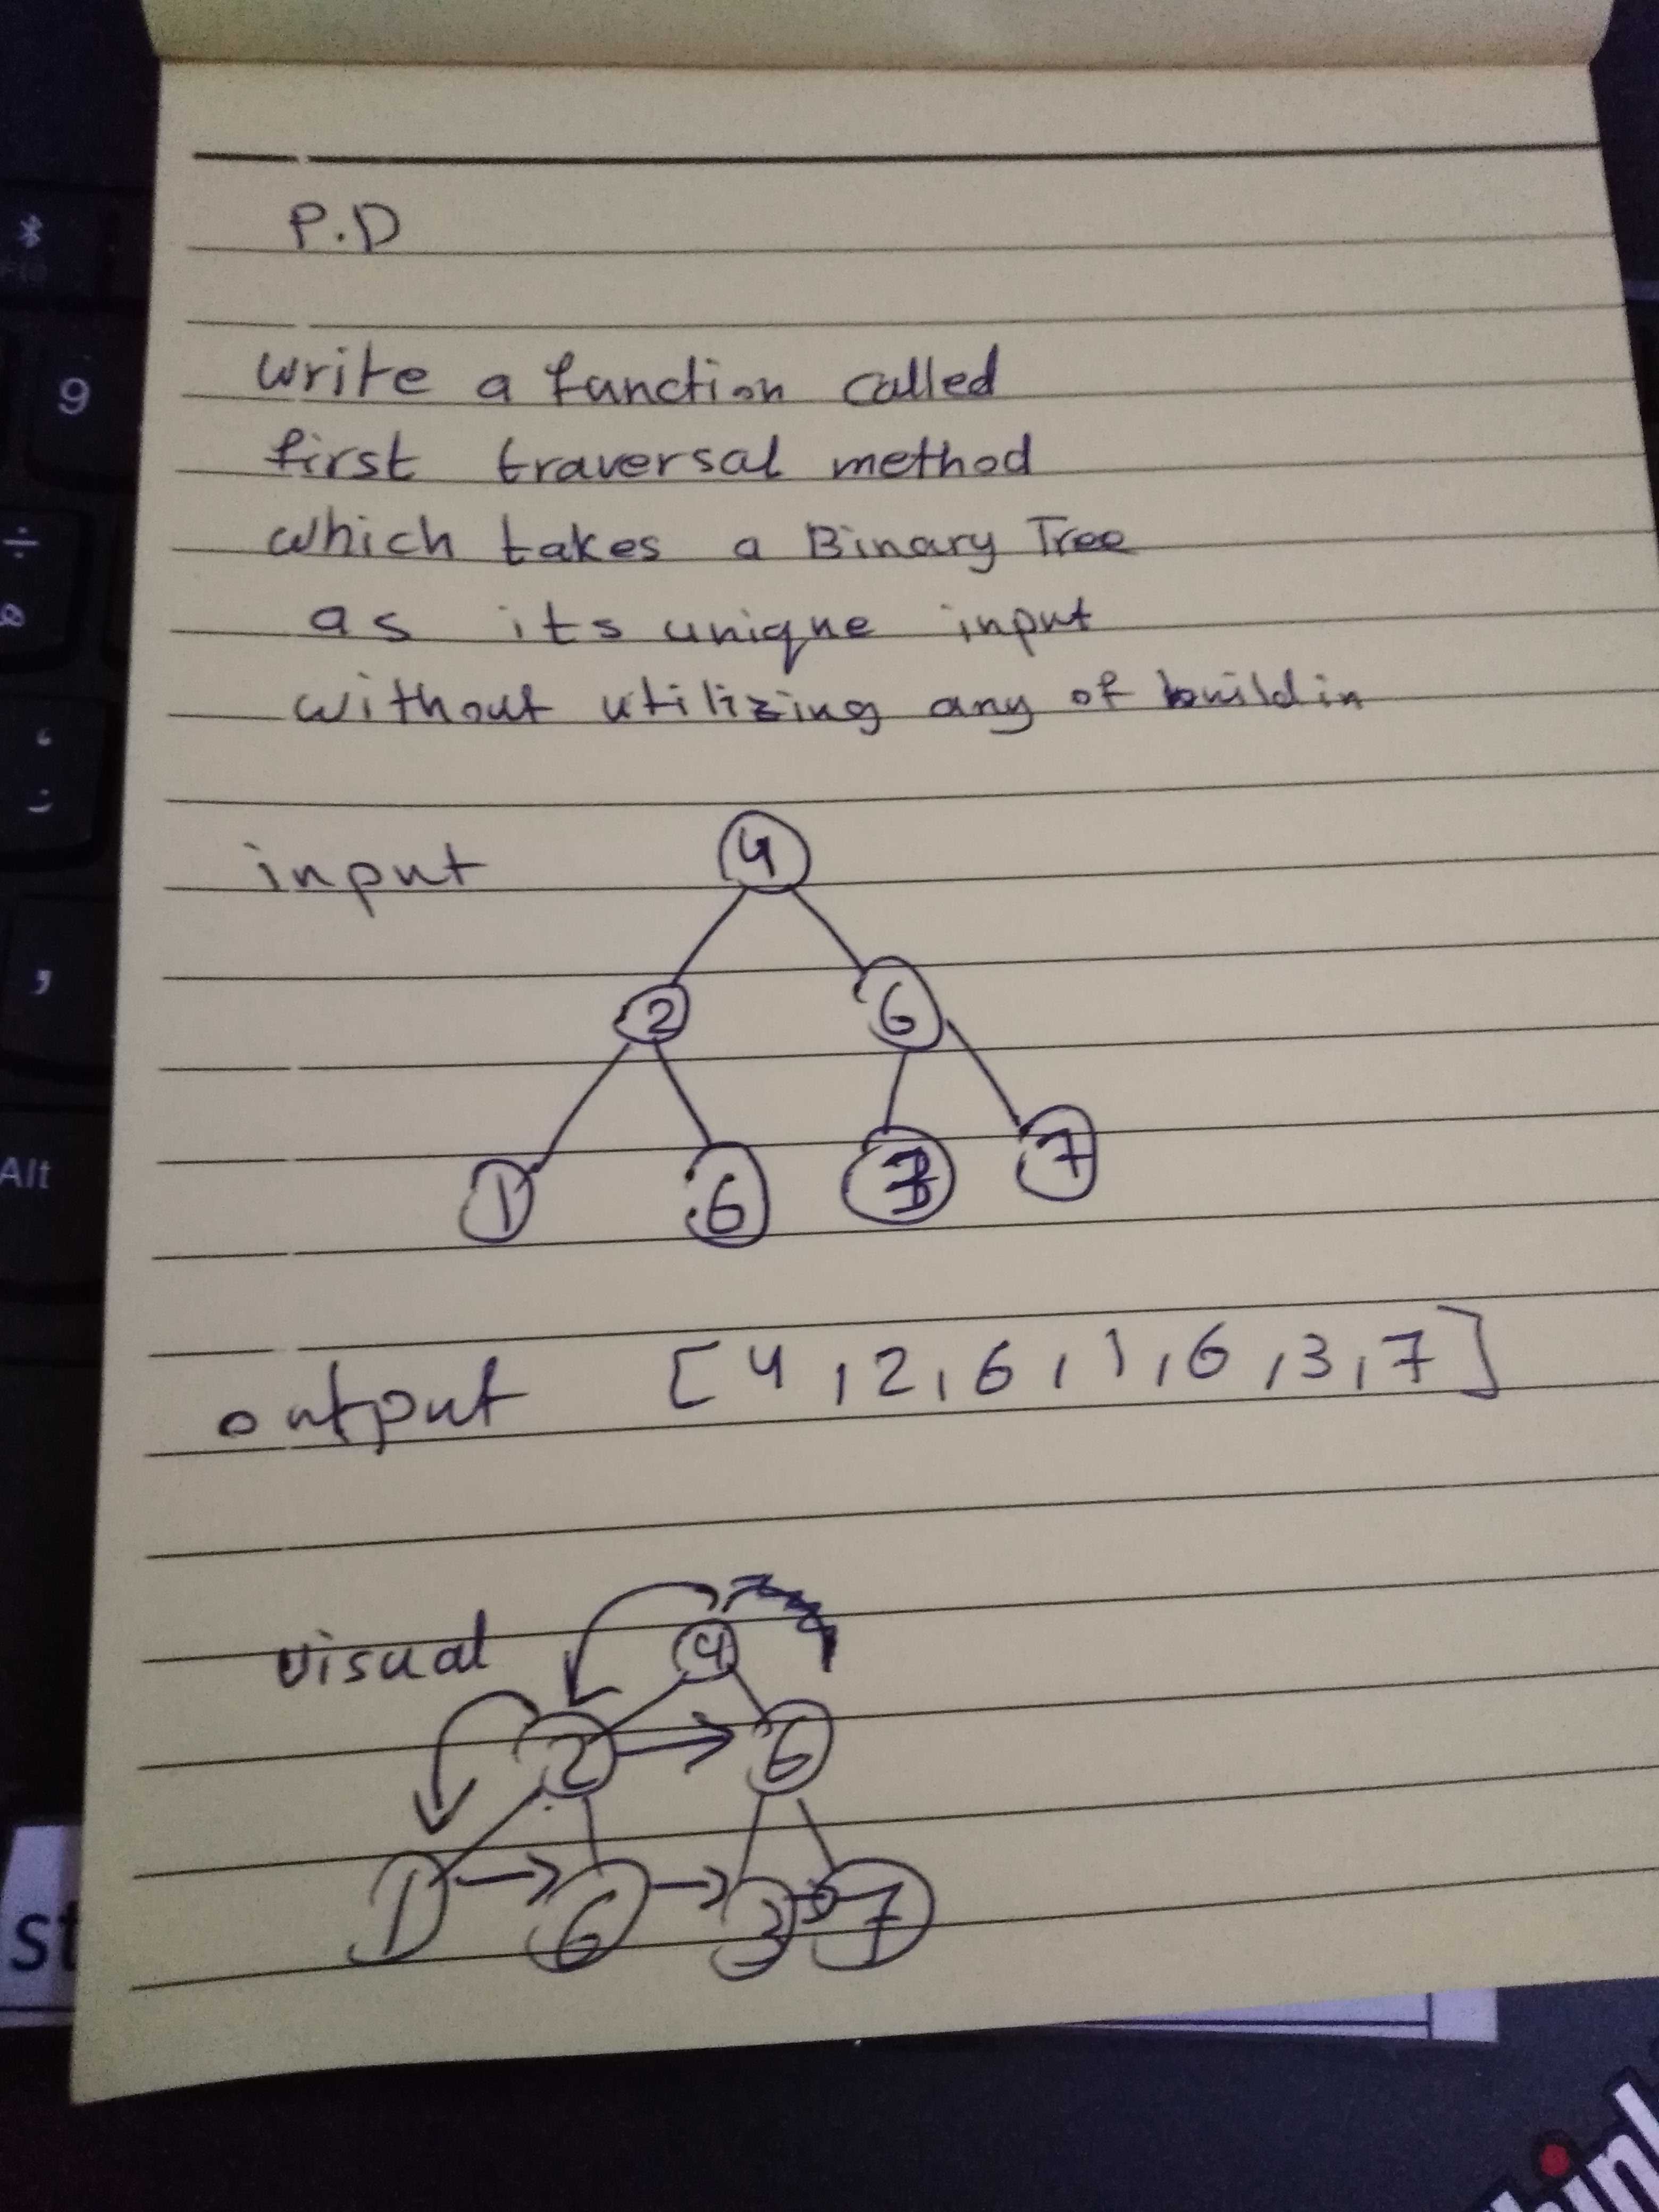 P.D
write a function called
first traversal method
which takes a Binary Tree
as its unique input
without utilizing any of buildin
input
4
2 6
1 6 3 7
output [4,2,6,1,6,3,7]
visual
4
2 6
1 6 3 7
9
Alt
st